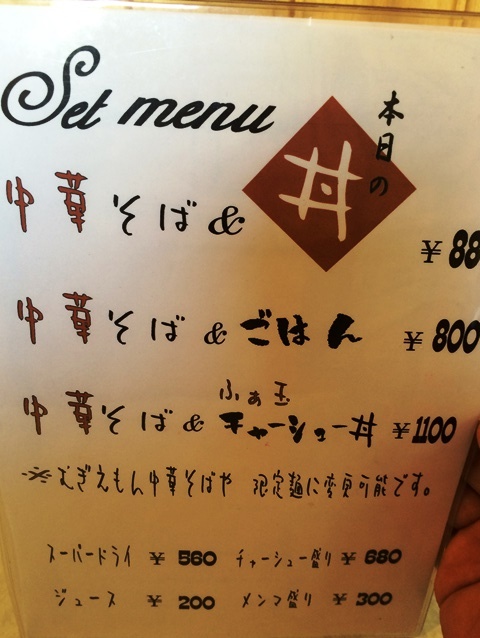 Set menu
中華そば & 本日の丼 ¥88
中華そば & ごはん ¥800
ふぁ玉
中華そば & チャーシュー丼 ¥1100
※むぎえもん中華そばや 限定麺に変更可能です。
スーパードライ ¥560 チャーシュー盛り ¥680
ジュース ¥200 メンマ盛り ¥300